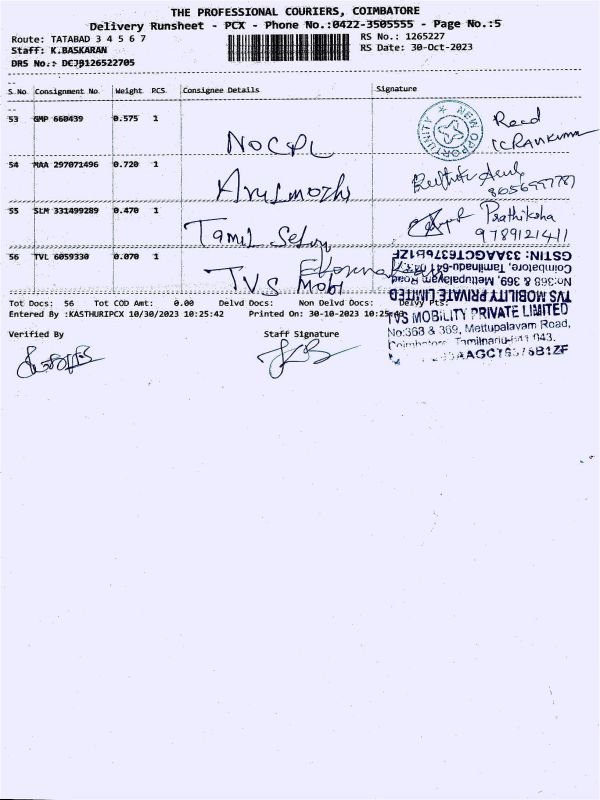 THE PROFESSIONAL COURIERS, COIMBATORE
Delivery Runsheet - PCX - Phone No.:0422-3505555 - Page No.:5
Route: TATABAD 3 4 5 6 7 RS No.: 1265227
Staff: K.BASKARAN RS Date: 30-Oct-2023
DRS No.: DCJB126522705
S.No Consignment No. Weight PCS Consignee Details Signature
53 GMP 660439 0.575 1 NOCPL NEW OPPORTUNITY
54 MAA 297071496 0.720 1 Arulmozhi 8056997787
55 SLM 331499289 0.470 1 Tamil Selvi Prathiksha
9789121411
56 TVL 6059330 0.070 1 TVS Mobi
TVS MOBILITY PRIVATE LIMITED
No:368 & 369, Mettupalayam Road,
Coimbatore, Tamilnadu-641 043.
GSTIN: 33AAGCT6376B1ZF
Tot Docs: 56 Tot COD Amt: 0.00 Delvd Docs: Non Delvd Docs: Delvy Pts:
Entered By :KASTHURIPCX 10/30/2023 10:25:42 Printed On: 30-10-2023 10:25:43
TVS MOBILITY PRIVATE LIMITED
No:368 & 369, Mettupalayam Road,
Coimbatore, Tamilnadu-641 043.
Verified By Staff Signature